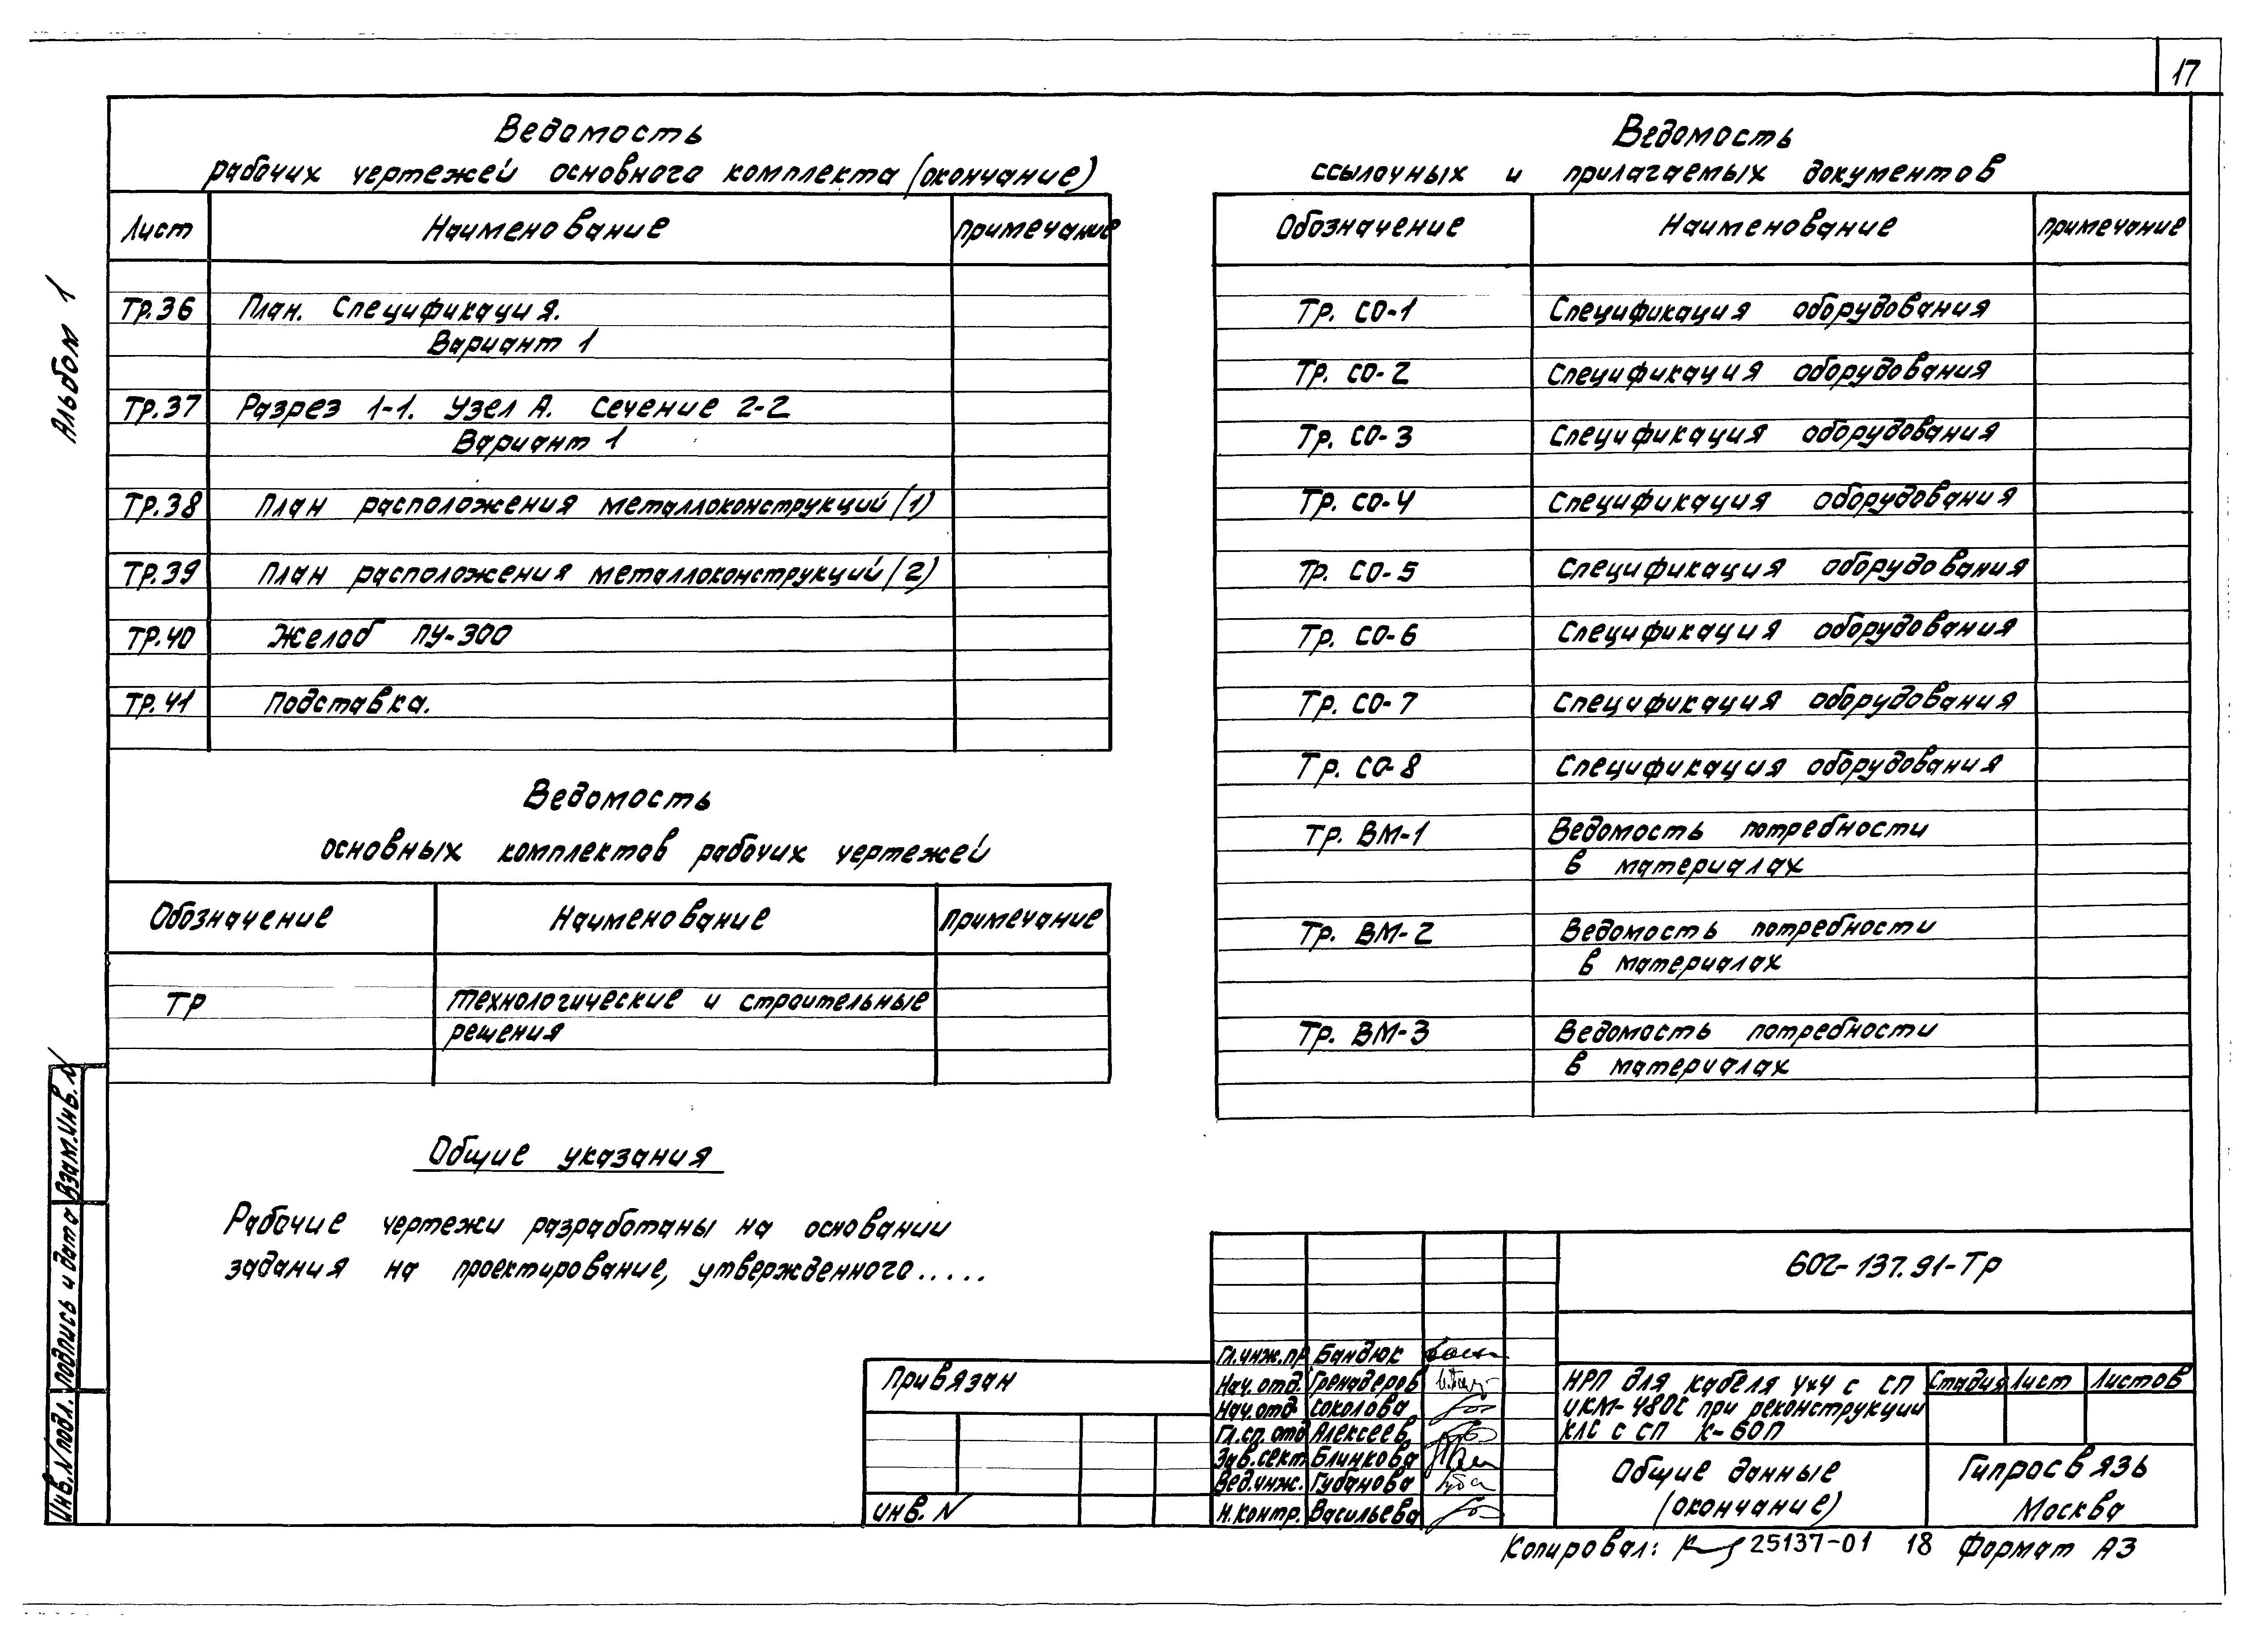 17
Альбом 1
Ведомость
рабочих чертежей основного комплекта (окончание)
Лист Наименование Примечание
Тр.36 План. Спецификация.
Вариант 1
Тр.37 Разрез 1-1. Узел А. Сечение 2-2
Вариант 1
Тр.38 План расположения металлоконструкций (1)
Тр.39 План расположения металлоконструкций (2)
Тр.40 Желоб ПУ-300
Тр.41 Подставка.
Ведомость
основных комплектов рабочих чертежей
Обозначение Наименование Примечание
Тр Технологические и строительные
решения
Общие указания
Рабочие чертежи разработаны на основании
задания на проектирование, утвержденного.....
Ведомость
ссылочных и прилагаемых документов
Обозначение Наименование Примечание
Тр. СО-1 Спецификация оборудования
Тр. СО-2 Спецификация оборудования
Тр. СО-3 Спецификация оборудования
Тр. СО-4 Спецификация оборудования
Тр. СО-5 Спецификация оборудования
Тр. СО-6 Спецификация оборудования
Тр. СО-7 Спецификация оборудования
Тр. СО-8 Спецификация оборудования
Тр. ВМ-1 Ведомость потребности
в материалах
Тр. ВМ-2 Ведомость потребности
в материалах
Тр. ВМ-3 Ведомость потребности
в материалах
Взам.инв.N
Подпись и дата
Инв.N подл.
Привязан
Инв. N
602-137.91-Тр
Гл.инж.пр Бандюк
Нач.отд. Гренадеров
Нач.отд. Соколова
Гл.сп.отд Алексеев
Зав.сект. Блинкова
Вед.инж. Губанова
Н.контр. Васильева
НРП для кабеля 4х4 с СП
ИКМ-480С при реконструкции
КЛС с СП К-60П
Стадия Лист Листов
Общие данные
(окончание)
Гипросвязь
Москва
Копировал: 25137-01 18 Формат А3